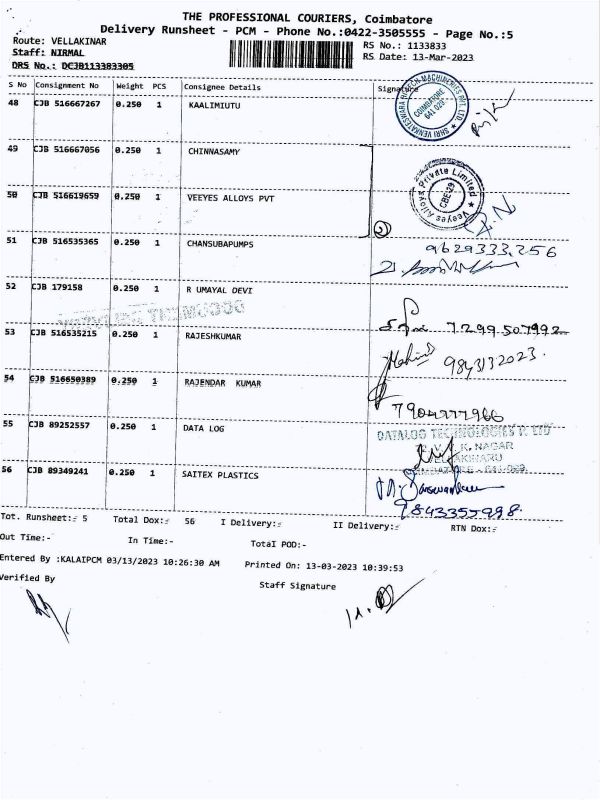 THE PROFESSIONAL COURIERS, Coimbatore
Delivery Runsheet - PCM - Phone No.:0422-3505555 - Page No.:5
Route: VELLAKINAR
RS No.: 1133833
Staff: NIRMAL
RS Date: 13-Mar-2023
DRS No.: DCJB113383305
S No Consignment No Weight PCS Consignee Details Signature
48 CJB 516667267 0.250 1 KAALIMIUTU
COIMBATORE
641 029
49 CJB 516667056 0.250 1 CHINNASAMY
50 CJB 516619659 0.250 1 VEEYES ALLOYS PVT
Veeyes Alloys Private Limited
CBE-29
51 CJB 516535365 0.250 1 CHANSUBAPUMPS
9629333256
52 CJB 179158 0.250 1 R UMAYAL DEVI
7299507992
53 CJB 516535215 0.250 1 RAJESHKUMAR
9843132023.
54 CJB 516650389 0.250 1 RAJENDAR KUMAR
55 CJB 89252557 0.250 1 DATA LOG
DATALOG TECHNOLOGIES P. LTD
K. NAGAR
56 CJB 89349241 0.250 1 SAITEX PLASTICS
9843355998.
Tot. Runsheet:- 5 Total Dox:- 56 I Delivery:- II Delivery:- RTN Dox:-
Out Time:- In Time:- Total POD:-
Entered By :KALAIPCM 03/13/2023 10:26:30 AM Printed On: 13-03-2023 10:39:53
Verified By Staff Signature